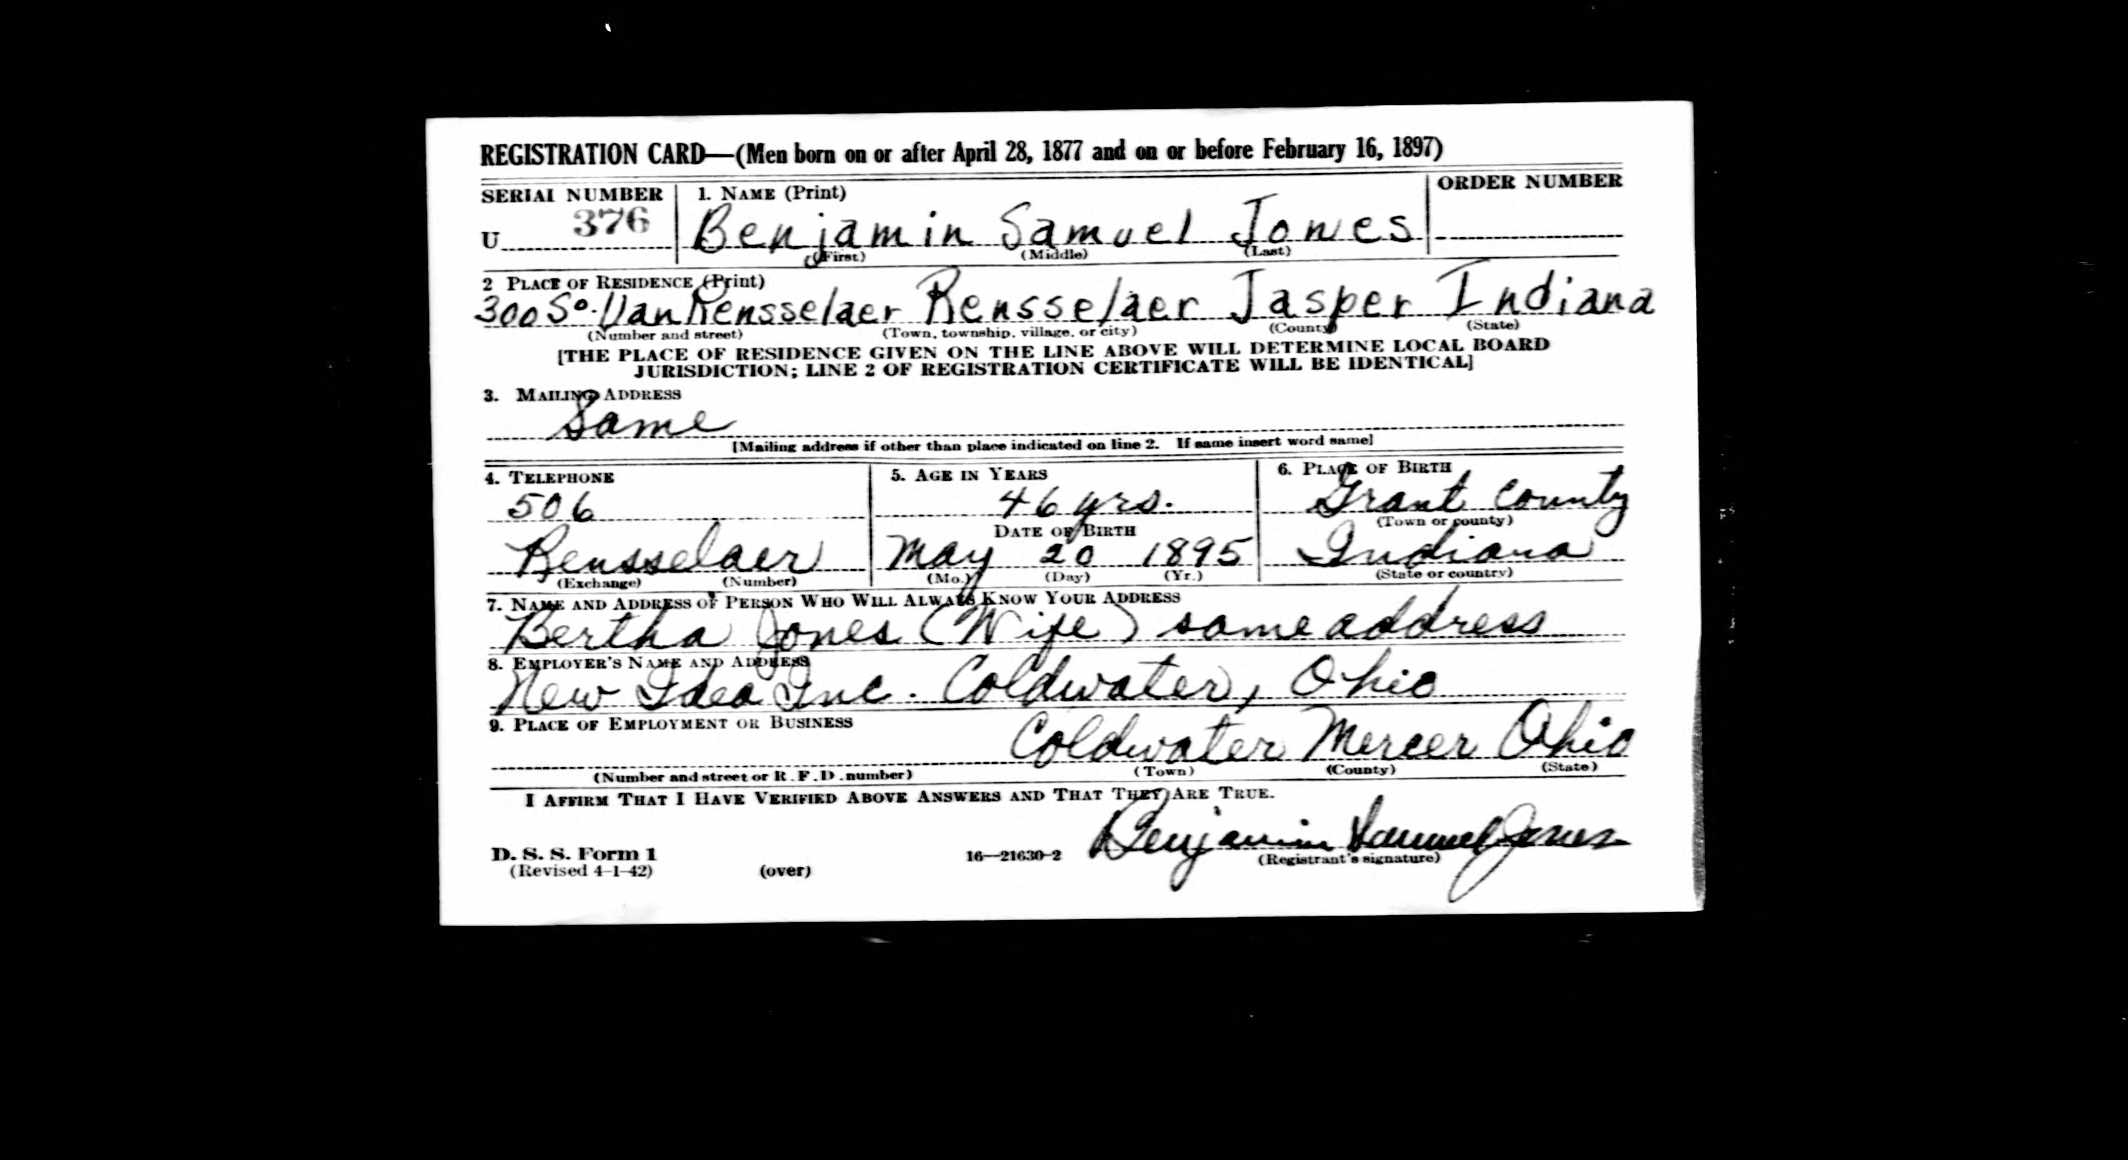 REGISTRATION CARD—(Men born on or after April 28, 1877 and on or before February 16, 1897)
SERIAL NUMBER 1. NAME (Print) ORDER NUMBER
U 376 Benjamin Samuel Jones
(First) (Middle) (Last)
2 PLACE OF RESIDENCE (Print)
300 So. Van Rensselaer Rensselaer Jasper Indiana
(Number and street) (Town, township, village, or city) (County) (State)
[THE PLACE OF RESIDENCE GIVEN ON THE LINE ABOVE WILL DETERMINE LOCAL BOARD
JURISDICTION; LINE 2 OF REGISTRATION CERTIFICATE WILL BE IDENTICAL]
3. MAILING ADDRESS
Same
[Mailing address if other than place indicated on line 2. If same insert word same]
4. TELEPHONE 5. AGE IN YEARS 6. PLACE OF BIRTH
506 46 yrs. Grant County
DATE OF BIRTH (Town or county)
Rensselaer May 20 1895 Indiana
(Exchange) (Number) (Mo.) (Day) (Yr.) (State or country)
7. NAME AND ADDRESS OF PERSON WHO WILL ALWAYS KNOW YOUR ADDRESS
Bertha Jones (Wife) same address
8. EMPLOYER'S NAME AND ADDRESS
New Idea Inc. Coldwater, Ohio
9. PLACE OF EMPLOYMENT OR BUSINESS
Coldwater Mercer Ohio
(Number and street or R. F. D. number) (Town) (County) (State)
I AFFIRM THAT I HAVE VERIFIED ABOVE ANSWERS AND THAT THEY ARE TRUE.
Benjamin Samuel Jones
D. S. S. Form 1 16—21630-2 (Registrant's signature)
(Revised 4-1-42) (over)